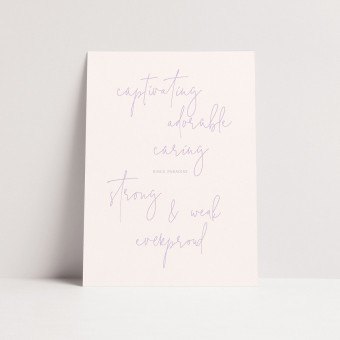 captivating
adorable
caring
strong
& weak
overproud